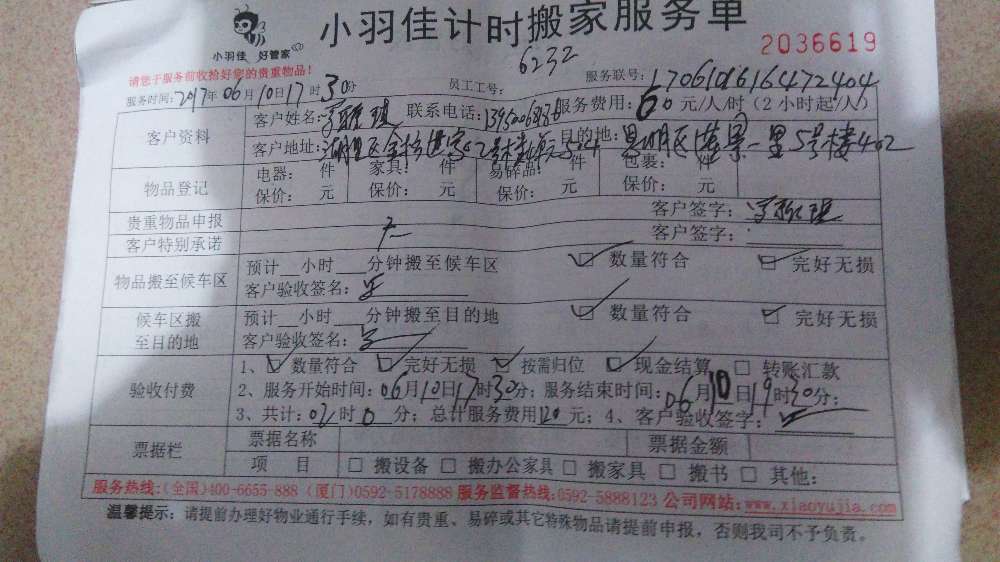 小羽佳计时搬家服务单
小羽佳 好管家
2036619
6232
请您于服务前收拾好您的贵重物品!
员工工号: 服务联号: 170610616472404
服务时间: 2017年06月10日17时30分
客户资料 客户姓名: 联系电话: 服务费用: 60元/人/时(2小时起/人)
客户地址: 目的地: 一里5号楼402
物品登记 电器: 件 家具: 件 易碎品: 件 包裹: 件
保价: 元 保价: 元 保价: 元 保价: 元
贵重物品申报 客户签字:
客户特别承诺 无 客户签字:
物品搬至候车区 预计__小时___分钟搬至候车区 数量符合 完好无损
客户验收签名:
候车区搬至目的地 预计__小时___分钟搬至目的地 数量符合 完好无损
客户验收签名:
验收付费 1、数量符合 完好无损 按需归位 现金结算 转账汇款
2、服务开始时间: 06月10日17时30分; 服务结束时间: 06月10日19时30分;
3、共计: 02时0分; 总计服务费用120元; 4、客户验收签字:
票据栏 票据名称 票据金额
项 目 □搬设备 □搬办公家具 □搬家具 □搬书 □其他:
服务热线:(全国)400-6655-888 (厦门)0592-5178888 服务监督热线:0592-5888123 公司网站:www.xiaoyujia.com
温馨提示: 请提前办理好物业通行手续,如有贵重、易碎或其它特殊物品请提前申报,否则我司不予负责。